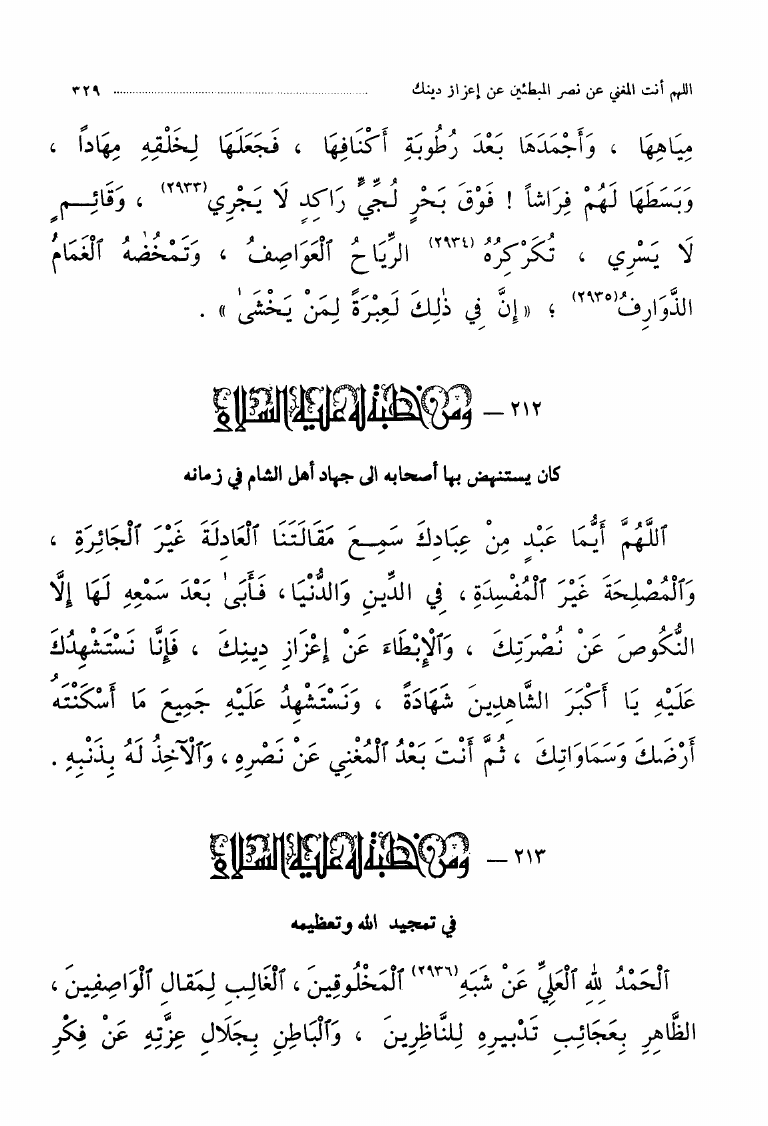 اللهم أنت المغني عن نصر المبطئين عن إعزاز دينك ........................ ٣٢٩
مِيَاهِهَا ، وَأَجْمَدَهَا بَعْدَ رُطُوبَةِ أَكْنَافِهَا ، فَجَعَلَهَا لِخَلْقِهِ مِهَاداً ،
وَبَسَطَهَا لَهُمْ فِرَاشاً ! فَوْقَ بَحْرٍ لُجِّيٍّ رَاكِدٍ لَا يَجْرِي (٢٩٣٣) ، وَقَائِمٍ
لَا يَسْرِي ، تُكَرْكِرُهُ (٢٩٣٤) الرِّيَاحُ الْعَوَاصِفُ ، وَتَمْخُضُهُ الْغَمَامُ
الذَّوَارِفُ (٢٩٣٥) ؛ « إِنَّ فِي ذٰلِكَ لَعِبْرَةً لِمَنْ يَخْشَىٰ » .
٢١٢ – ومن خطبة له عليه السلام
كان يستنهض بها أصحابه الى جهاد أهل الشام في زمانه
اَللَّهُمَّ أَيُّمَا عَبْدٍ مِنْ عِبَادِكَ سَمِعَ مَقَالَتَنَا الْعَادِلَةَ غَيْرَ الْجَائِرَةِ ،
وَالْمُصْلِحَةَ غَيْرَ الْمُفْسِدَةِ ، فِي الدِّينِ وَالدُّنْيَا ، فَأَبَىٰ بَعْدَ سَمْعِهِ لَهَا إِلَّا
النُّكُوصَ عَنْ نُصْرَتِكَ ، وَالْإِبْطَاءَ عَنْ إِعْزَازِ دِينِكَ ، فَإِنَّا نَسْتَشْهِدُكَ
عَلَيْهِ يَا أَكْبَرَ الشَّاهِدِينَ شَهَادَةً ، وَنَسْتَشْهِدُ عَلَيْهِ جَمِيعَ مَا أَسْكَنْتَهُ
أَرْضَكَ وَسَمَاوَاتِكَ ، ثُمَّ أَنْتَ بَعْدُ الْمُغْنِي عَنْ نَصْرِهِ ، وَالْآخِذُ لَهُ بِذَنْبِهِ .
٢١٣ – ومن خطبة له عليه السلام
في تمجيد الله وتعظيمه
اَلْحَمْدُ لِلهِ الْعَلِيِّ عَنْ شَبَهِ (٢٩٣٦) الْمَخْلُوقِينَ ، الْغَالِبِ لِمَقَالِ الْوَاصِفِينَ ،
الظَّاهِرِ بِعَجَائِبِ تَدْبِيرِهِ لِلنَّاظِرِينَ ، وَالْبَاطِنِ بِجَلَالِ عِزَّتِهِ عَنْ فِكْرِ